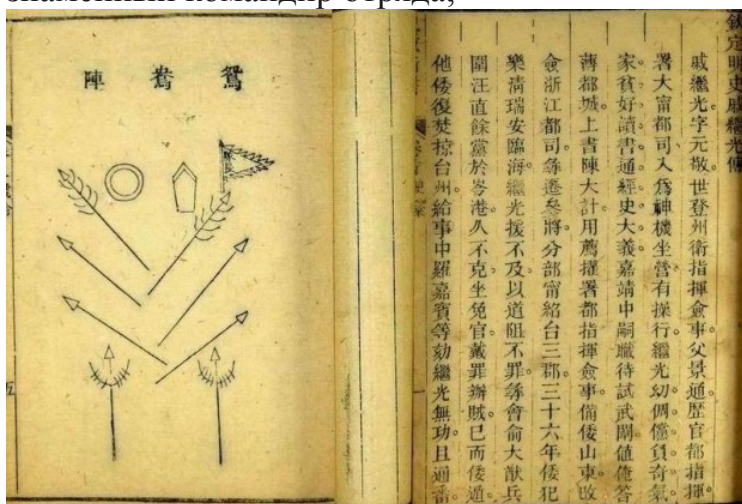 знаменный командир отряда,
欽定明史戚繼光傳
戚繼光字元敬。世登州衛指揮僉事父景通歷官都指揮。
署大甯都司入爲神機坐營有操行。繼光幼倜儻負奇氣
家貧好讀書。通經史大義。嘉靖中嗣職待試武闈値俺答
薄都城。上書陳大計用薦擢署都指揮僉事備倭山東改
僉浙江都司尋遷叅將分部甯紹台三郡三十六年倭犯
樂淸瑞安臨海繼光援不及以道阻不罪尋會俞大猷兵
圍汪直餘黨於岑港久不克坐免官戴罪辦賊已而倭遁
他倭復焚掠台州給事中羅嘉賓等劾繼光無功。且通番
鴛鴦陣
五